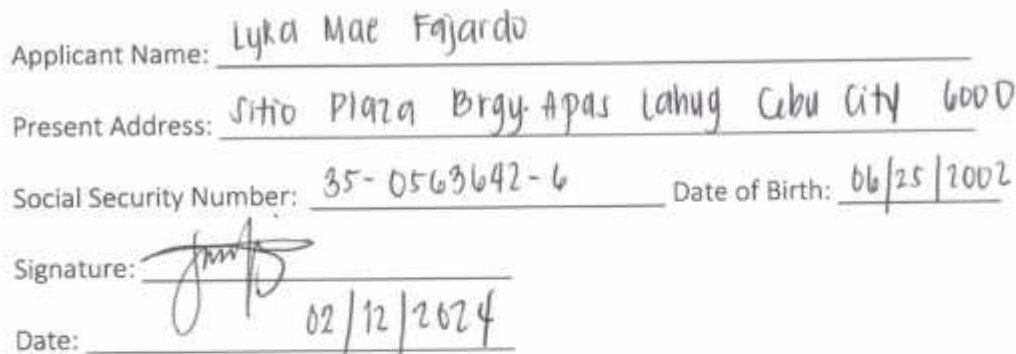 Applicant Name: Lyka Mae Fajardo
Present Address: Sitio Plaza Brgy. Apas Lahug Cebu City 6000
Social Security Number: 35-0563642-6 Date of Birth: 06/25/2002
Signature:
Date: 02/12/2024